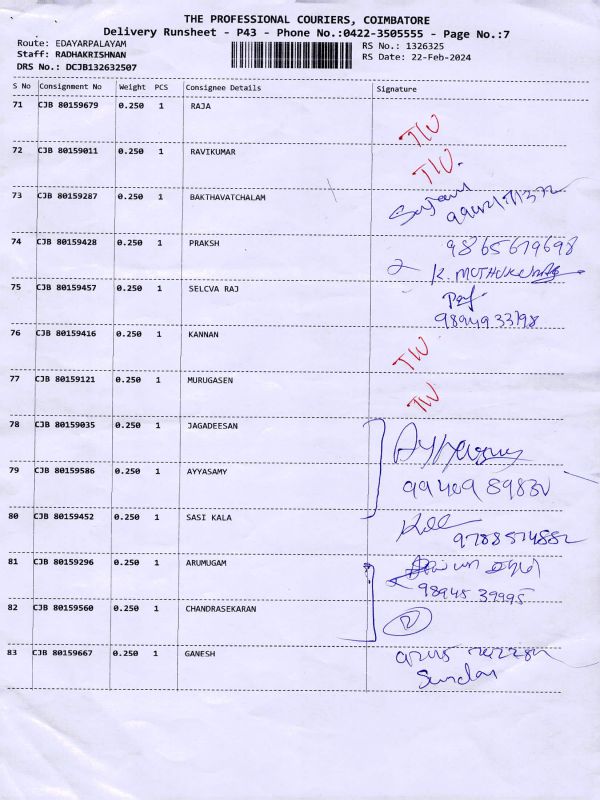 THE PROFESSIONAL COURIERS, COIMBATORE
Delivery Runsheet - P43 - Phone No.:0422-3505555 - Page No.:7
Route: EDAYARPALAYAM RS No.: 1326325
Staff: RADHAKRISHNAN RS Date: 22-Feb-2024
DRS No.: DCJB132632507
S No Consignment No Weight PCS Consignee Details Signature
71 CJB 80159679 0.250 1 RAJA
72 CJB 80159011 0.250 1 RAVIKUMAR
73 CJB 80159287 0.250 1 BAKTHAVATCHALAM
74 CJB 80159428 0.250 1 PRAKSH 9865679698
K. MUTHUKUMAR
75 CJB 80159457 0.250 1 SELCVA RAJ
9894933198
76 CJB 80159416 0.250 1 KANNAN
77 CJB 80159121 0.250 1 MURUGASEN
78 CJB 80159035 0.250 1 JAGADEESAN
79 CJB 80159586 0.250 1 AYYASAMY
80 CJB 80159452 0.250 1 SASI KALA
9788574882
81 CJB 80159296 0.250 1 ARUMUGAM
98945 39995
82 CJB 80159560 0.250 1 CHANDRASEKARAN
83 CJB 80159667 0.250 1 GANESH
Sundar